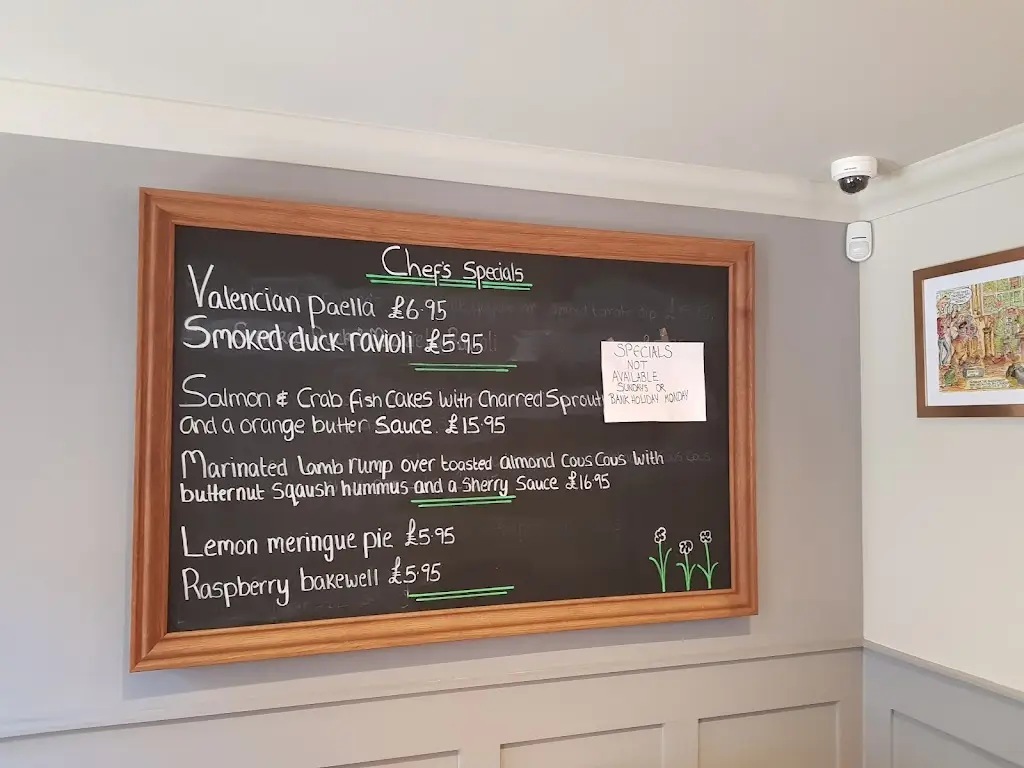 Chef's Specials
Valencian paella £6.95
Smoked duck ravioli £5.95
Salmon & Crab fish cakes with Charred Sprout
and a orange butter Sauce. £15.95
Marinated lamb rump over toasted almond Cous Cous with
butternut Sqaush hummus and a Sherry Sauce £16.95
Lemon meringue pie £5.95
Raspberry bakewell £5.95
SPECIALS
NOT
AVAILABLE
SUNDAYS OR
BANK HOLIDAY MONDAY